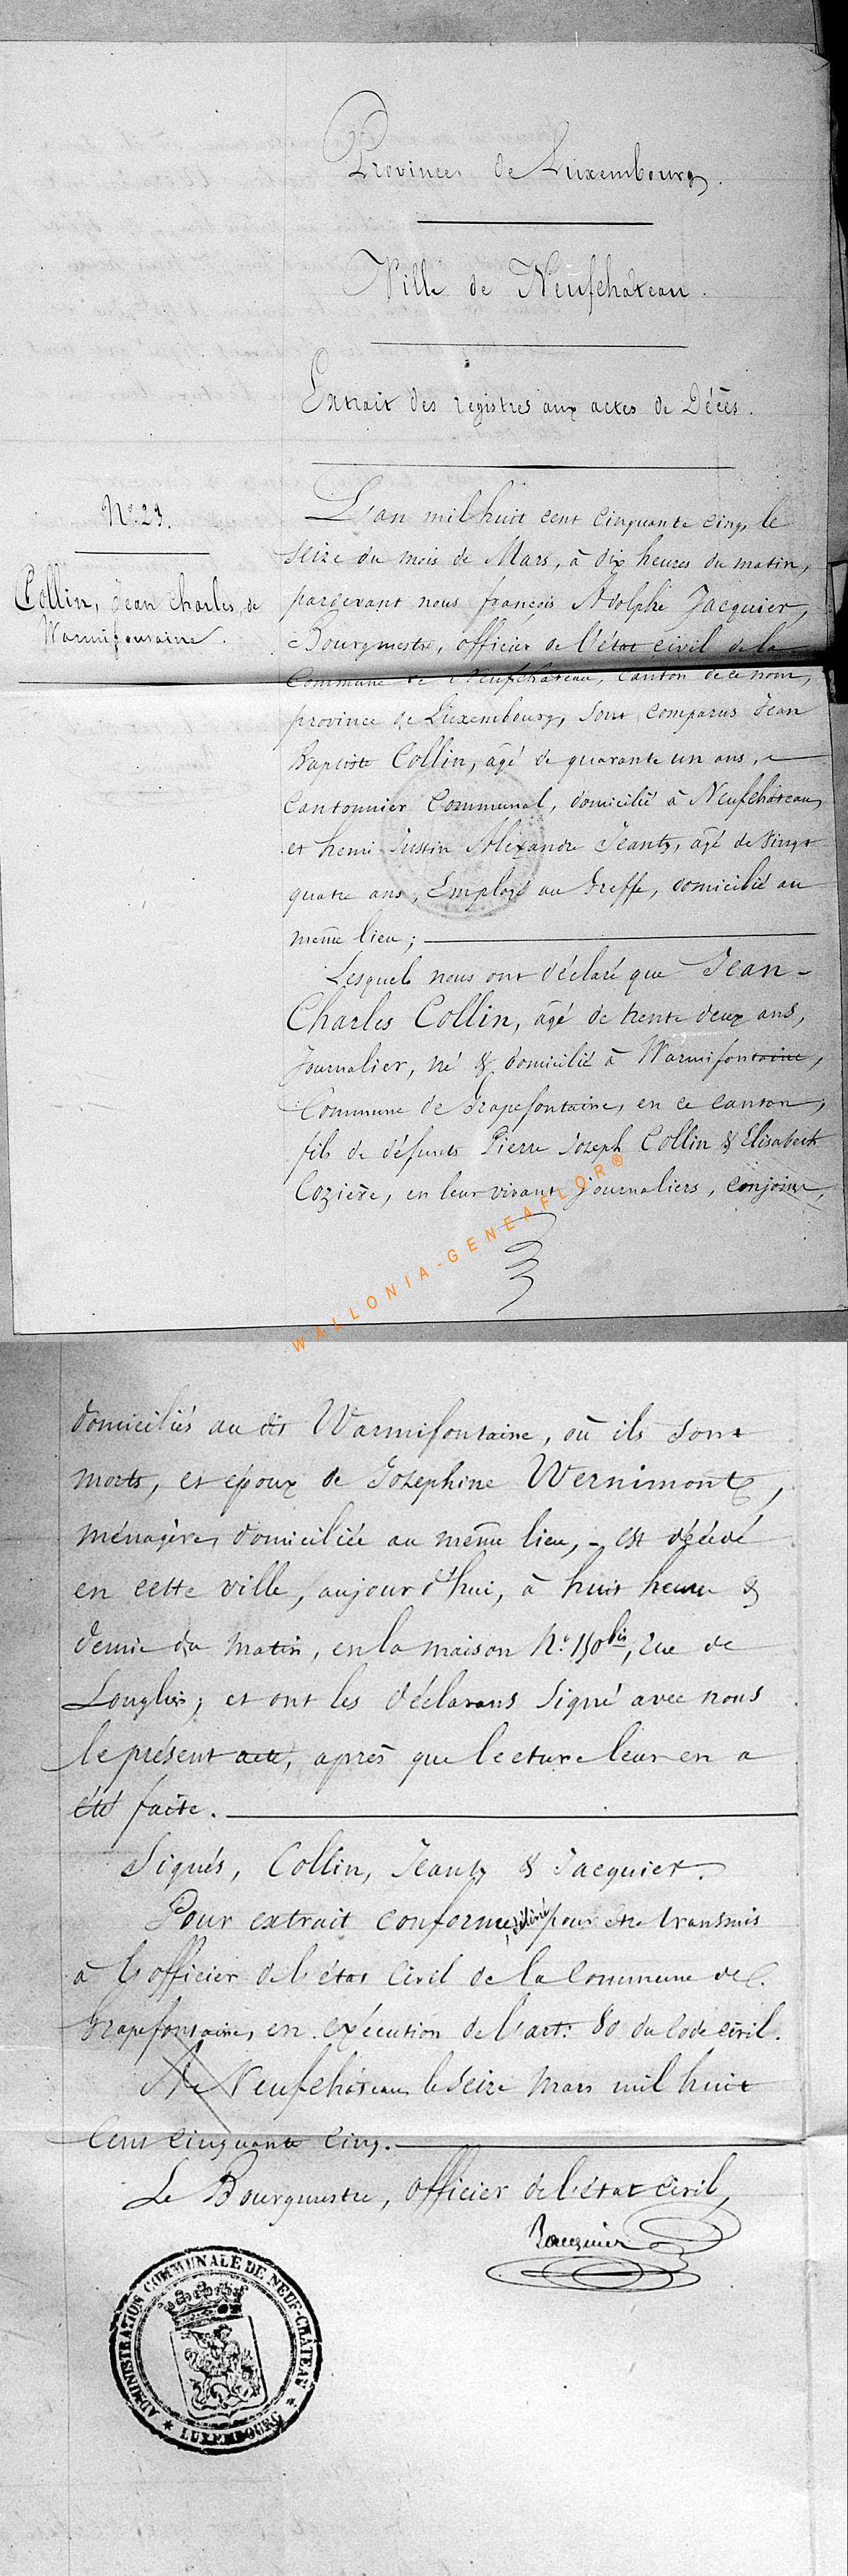 Province de Luxembourg.
Ville de Neufchateau.
Extrait des registres aux actes de Décès.
N.° 23.
Collin, Jean Charles, de
Warmifontaine.
L'an mil huit cent cinquante cinq, le
seize du mois de Mars, à dix heures du matin,
pardevant nous françois Adolphe Jacquier,
Bourgmestre, officier de l'état civil de la
Commune de Neufchateau, Canton de ce nom,
province de Luxembourg, sont comparus Jean
Baptiste Collin, agé de quarante un ans,
Cantonnier Communal, domicilié à Neufchateau,
et henri Justin Alexandre Jeanty, agé de vingt
quatre ans, Employé au Greffe, domicilié au
même lieu;
Lesquels nous ont déclaré que Jean-
Charles Collin, âgé de trente deux ans,
Journalier, né & domicilié à Warmifontaine,
Commune de Grapefontaine, en ce canton,
fils de défunts Pierre Joseph Collin & Elisabeth
Cozière, en leur vivant journaliers, conjoints,
WALLONIA-GENEAFLOR®
domiciliés au dit Warmifontaine, où ils sont
morts, et époux de Josephine Wernimont,
ménagère, domiciliée au même lieu, - est décédé
en cette ville, aujourd'hui, à huit heures &
demie du matin, en la maison N.° 150 bis, rue de
Longlier; et ont les déclarans signé avec nous
le présent acte, après que lecture leur en a
été faite.
Signés, Collin, Jeanty & Jacquier.
Pour extrait conforme, délivré pour être transmis
à l'officier de l'état civil de la Commune de
Grapefontaine, en exécution de l'art: 80 du Code civil.
A Neufchateau le seize mars mil huit
Cent cinquante cinq.
Le Bourgmestre, officier de l'état civil,
Jacquier
ADMINISTRATION COMMUNALE DE NEUF-CHÂTEAU
* LUXEMBOURG *